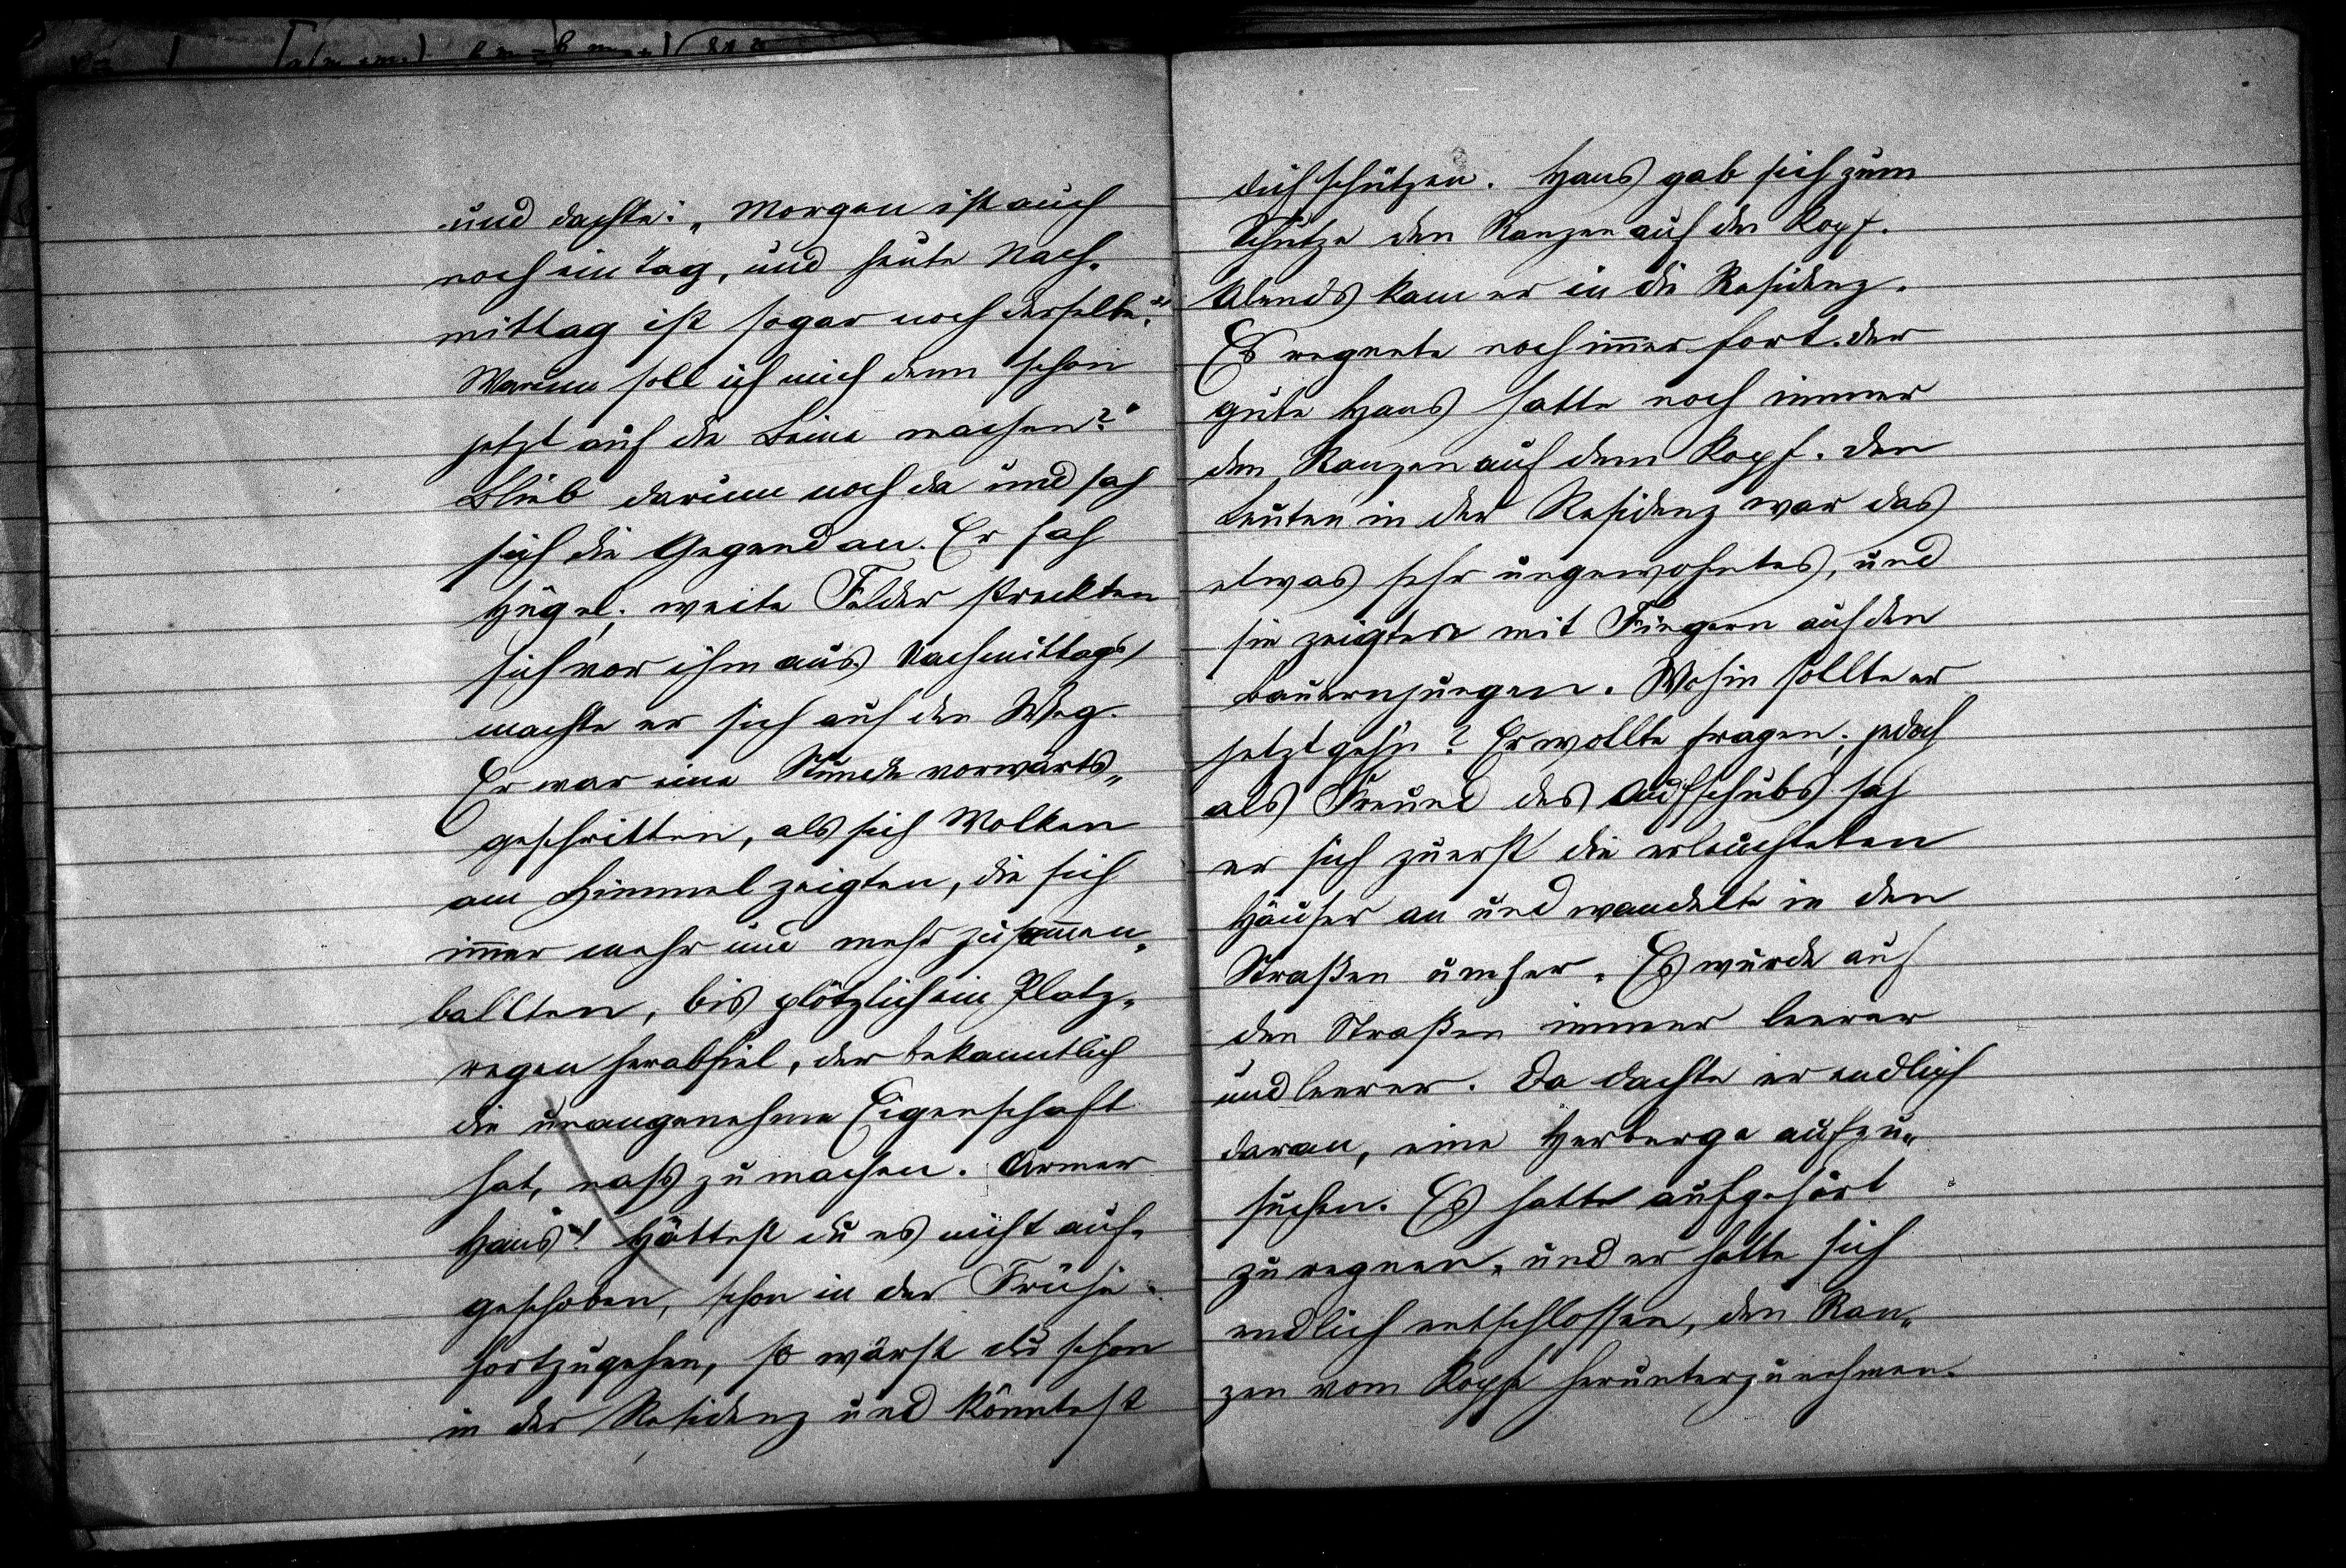 und dachte: „Morgen ist auch
noch ein Tag, und heute Nach-
mittag ist sogar noch derselbe.“
Warum soll ich mich denn schon
jetzt auf die Beine machen?“
Blieb darum noch da und sah
sich die Gegend an. Er sah
Hügel; weite Felder streckten
sich vor ihm aus. Nachmittags
machte er sich auf den Weg.
Er war eine Stunde vorwärts-
geschritten, als sich Wolken
am Himmel zeigten, die sich
im̄er mehr und mehr zusam̄en-
ballten, bis plötzlich ein Platz-
regen herabfiel, der bekanntlich
die unangenehme Eigenschaft
hat, naß zu machen. Armer
Hans! Hättest du es nicht auf-
geschoben, schon in der Frühe
fortzugehen, so wärst du schon
in der Residenz und könntest
dich schützen. Hans gab sich zum
Schutze den Ranzen auf den Kopf.
Abends kam er in die Residenz.
Es regnete noch im̄er fort. Der
gute Hans hatte noch immer
den Ranzen auf dem Kopf. Den
Leuten in der Residenz war das
etwas sehr ungewohntes, und
sie zeigten mit Fingern auf den
Bauernjungen. Wohin sollte er
jetzt gehn? Er wollte fragen; jedoch
als Freund des Aufschubs sah
er sich zuerst die erleuchteten
Häuser an und wandelte in den
Straßen umher. Es wurde auf
den Straßen immer leerer
und leerer. Da dachte er endlich
daran, eine Herberge aufzu-
suchen. Es hatte aufgehört
zu regnen, und er hatte sich
endlich entschlossen, den Ran-
zen vom Kopfe herunterzunehmen.